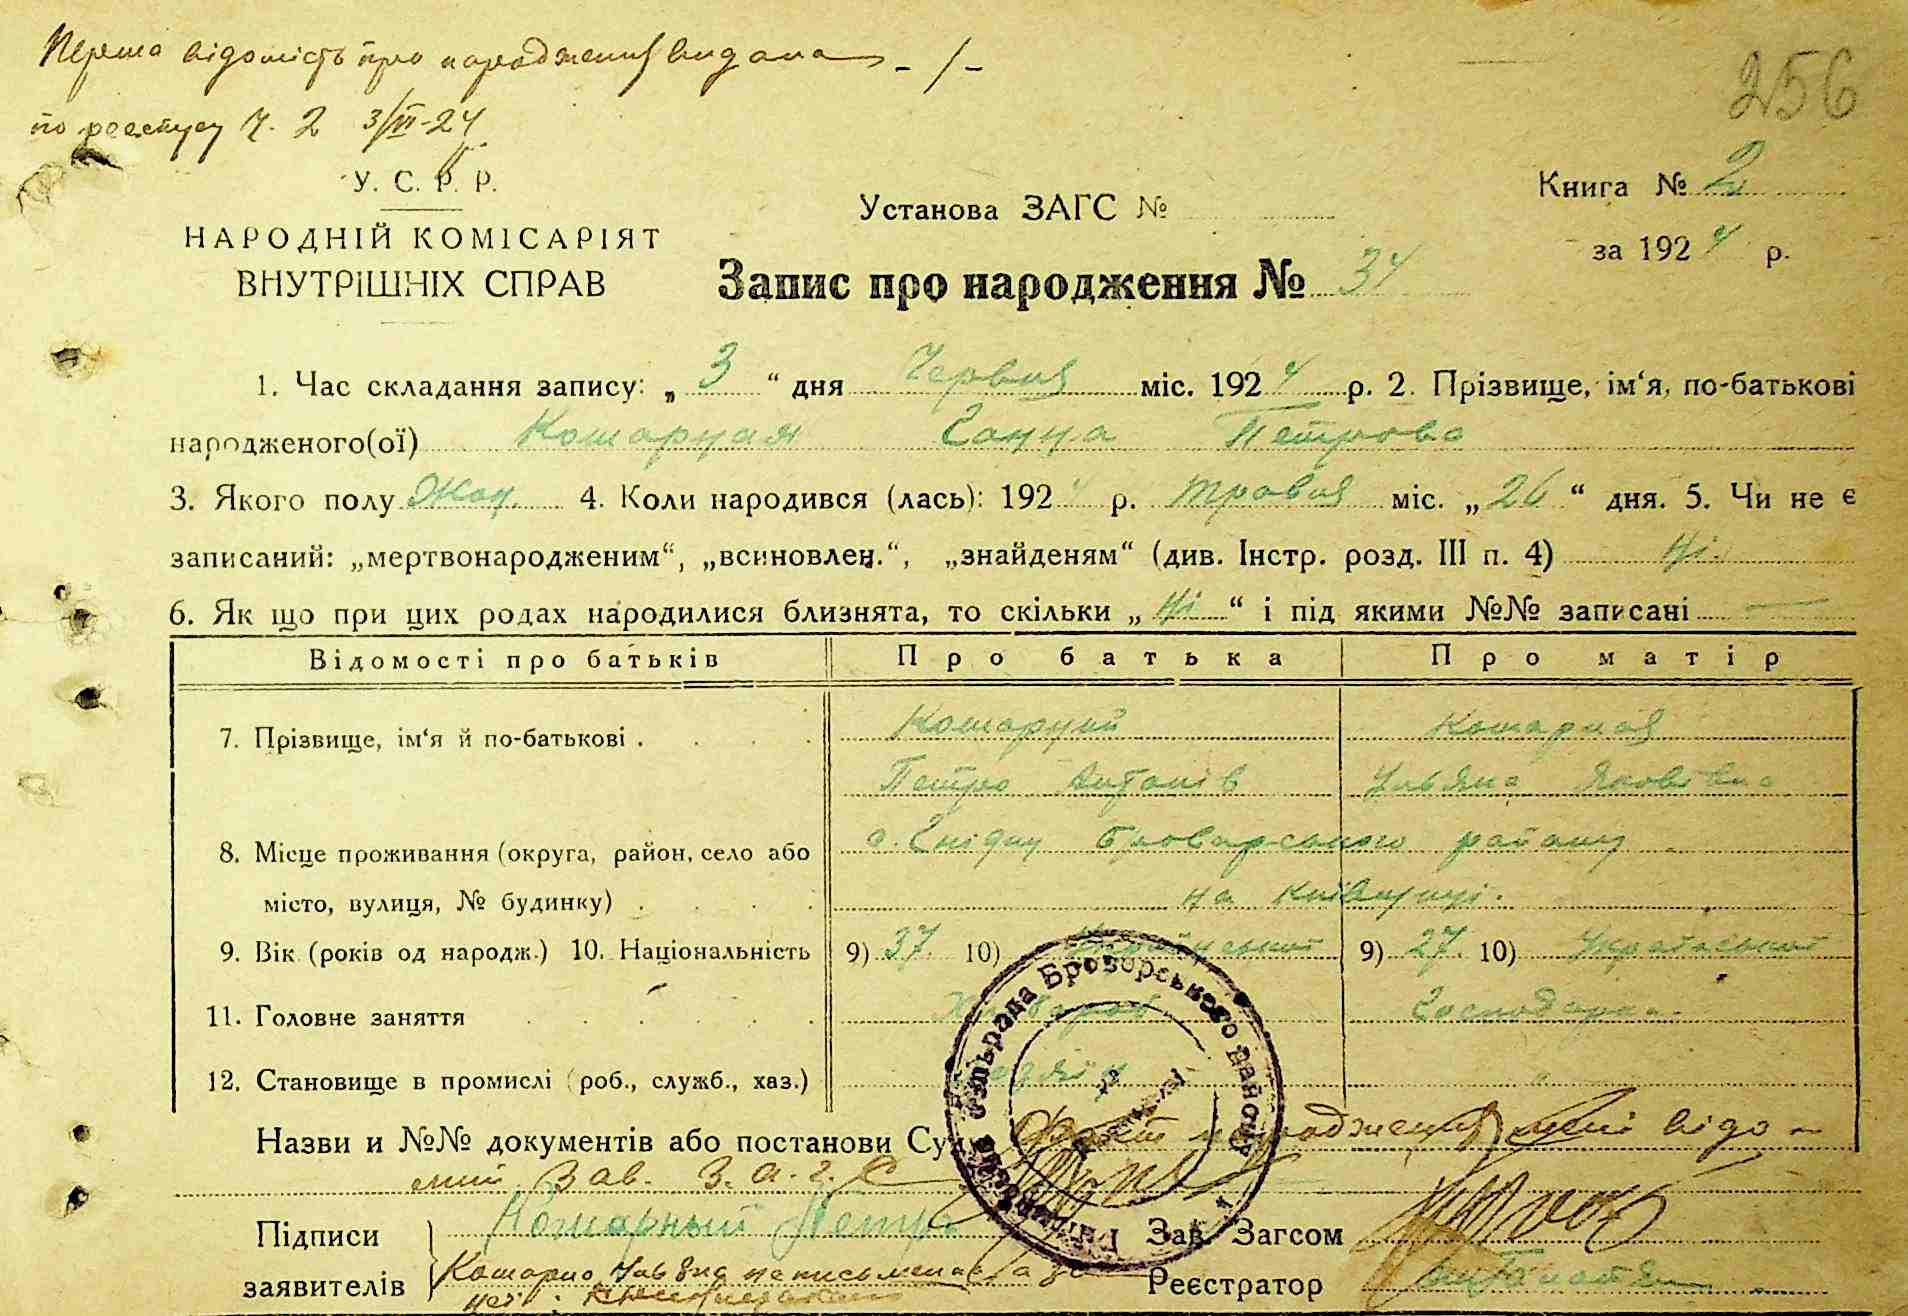 Перша відомість про народження видана - / -
по реєстру Ч. 2 3/VI-24
256
У. С. Р. Р.
НАРОДНІЙ КОМІСАРІЯТ
ВНУТРІШНІХ СПРАВ
Установа ЗАГС №
Книга № 2
за 1924 р.
Запис про народження № 34
1. Час складання запису: „ 3 “ дня Червня міс. 1924 р. 2. Прізвище, ім‘я, по-батькові
народженого(ої) Кошарная Ганна Петрова
3. Якого полу Жон. 4. Коли народився (лась): 1924 р. травня міс. „ 26 “ дня. 5. Чи не є
записаний: „мертвонародженим“, „всиновлен.“, „знайденям“ (див. Інстр. розд. III п. 4) Ні.
6. Як що при цих родах народилися близнята, то скільки „ Ні “ і під якими №№ записані —
Відомості про батьків Про батька Про матір
7. Прізвище, ім‘я й по-батькові . Кошарний Кошарная
Петро Антонів Ульяна Яковівна
8. Місце проживання (округа, район, село або с. Гнідин Броварського району
місто, вулиця, № будинку) . на Київщині.
9. Вік (років од народж.) 10. Національність 9) 37. 10) Української 9) 27. 10) Української
11. Головне заняття Хлібороб Господарка
12. Становище в промислі (роб., служб., хаз.) хазяїн "
Назви и №№ документів або постанови Суду Факт народження мені відо-
мий Зав. З.А.Г.С
Підписи Кошарный Петро Зав. Загсом
заявителів Кошарна Ульяна неписьменна Реєстратор
сільрада Броварського району